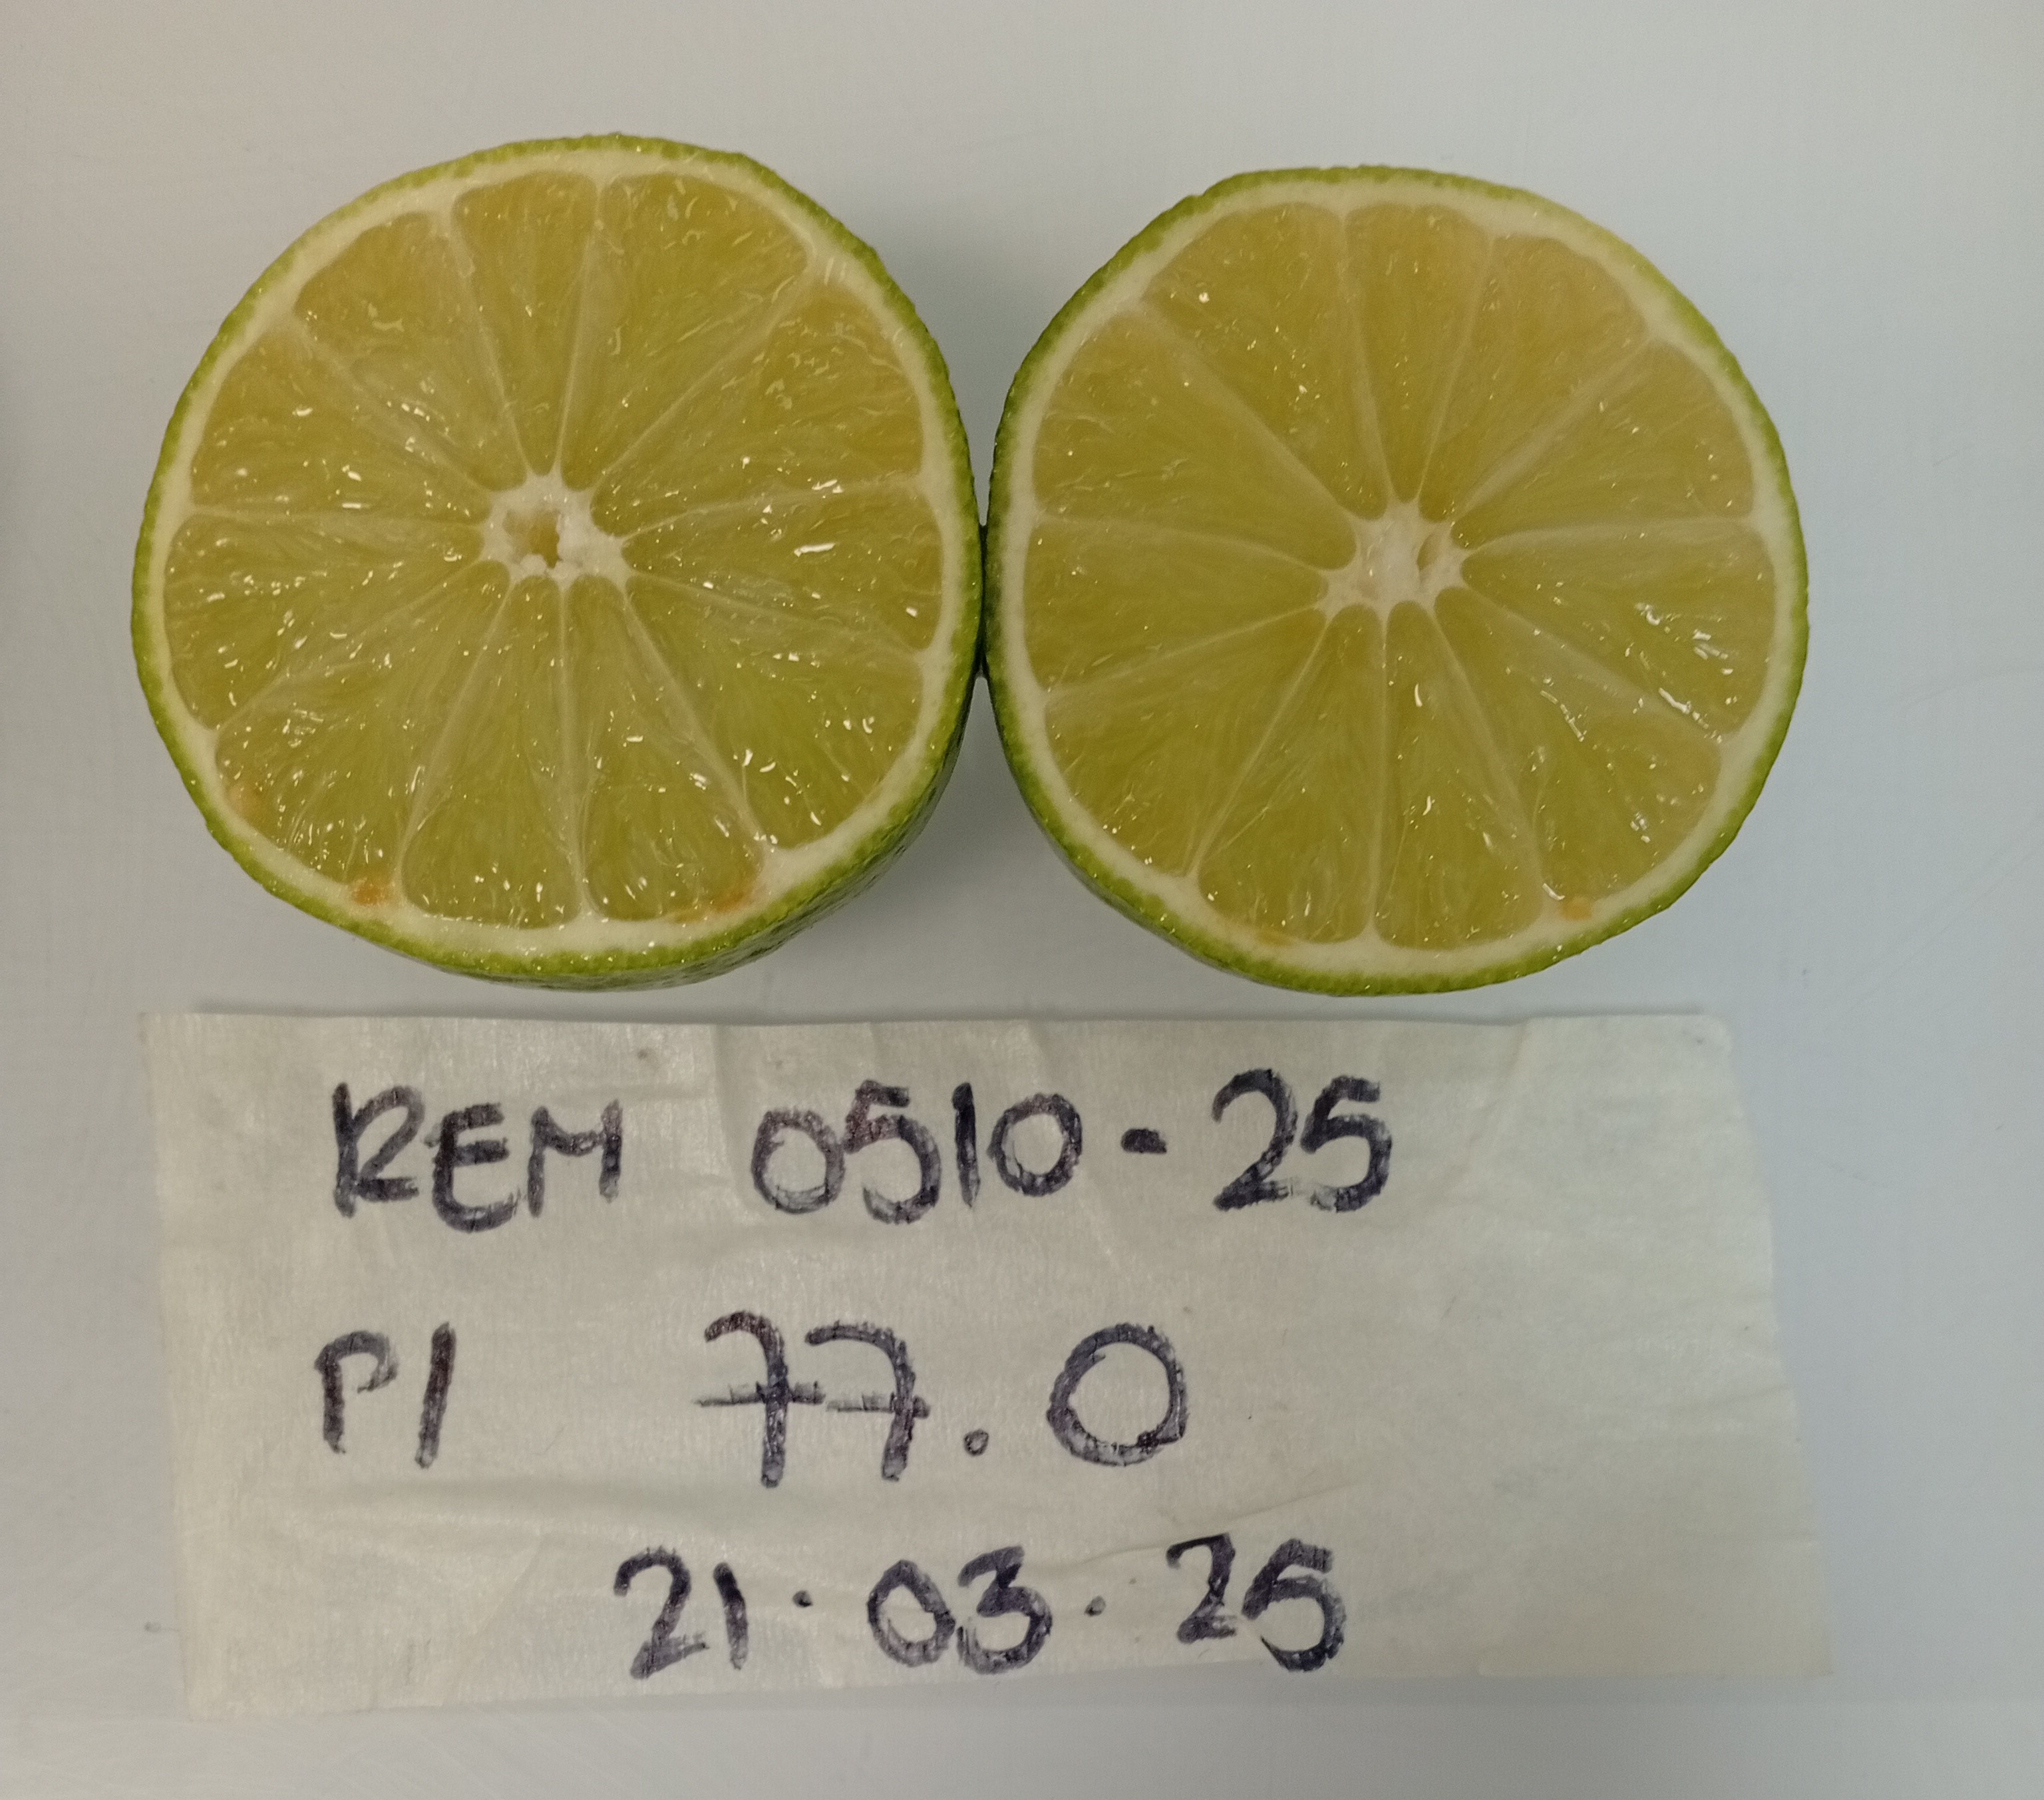 REM 0510-25
P1 77.0
21.03.25